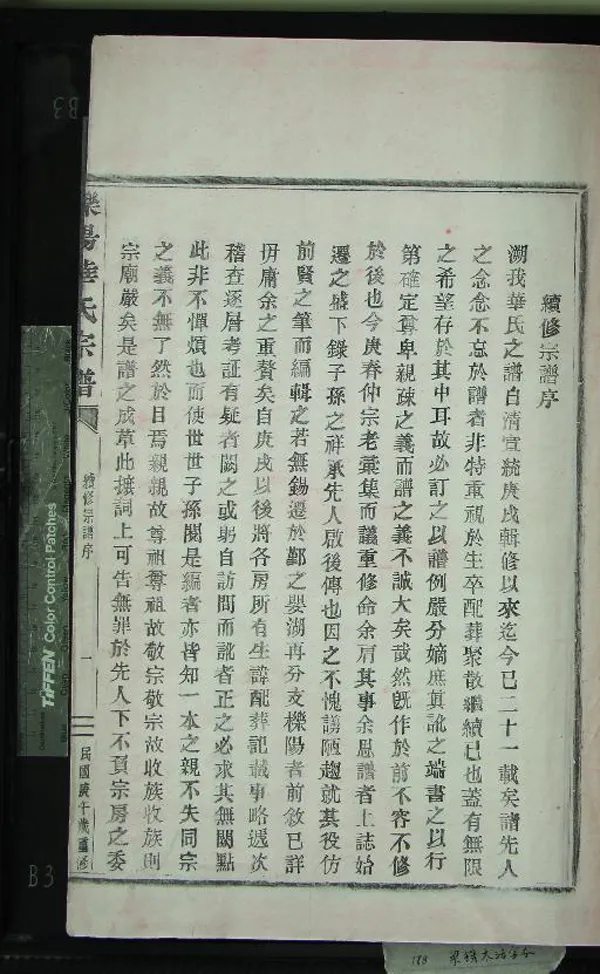 續修宗譜序
溯我華氏之譜自清宣統庚戌輯修以來迄今已二十一載矣諸先人
之念念不忘於譜者非特重視於生卒配葬聚散繼續已也蓋有無限
之希望存於其中耳故必訂之以譜例嚴分嫡庶真訛之端書之以行
第確定尊卑親疎之義而譜之義不誠大矣哉然既作於前不容不修
於後也今庚春仲宗老彙集而議重修命余肩其事余思譜者上誌始
遷之盛下錄子孫之祥承先人啟後傳也因之不愧譾陋趨就其役仿
前賢之筆而編輯之若無錫遷於鄞之嬰湖再分支櫟陽者前敘已詳
毋庸余之重贅矣自庚戌以後將各房所有生諱配葬記載事略逐次
稽查逐層考証有疑者闕之或躬自訪問而訛者正之必求其無闕點
此非不憚煩也而使世世子孫閱是編者亦皆知一本之親不失同宗
之義不無了然於目焉親親故尊祖尊祖故敬宗敬宗故收族收族則
宗廟嚴矣是譜之成草此接詞上可告無罪於先人下不負宗房之委
櫟陽華氏宗譜
續修宗譜序
一
民國庚午歲重修
B3
B3
TIFFEN Color Control Patches
188